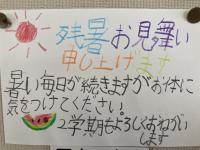 残暑お見舞い
申し上げます
暑い毎日が続きますがお体に
気をつけてください。
2学期もよろしくおねがい
します